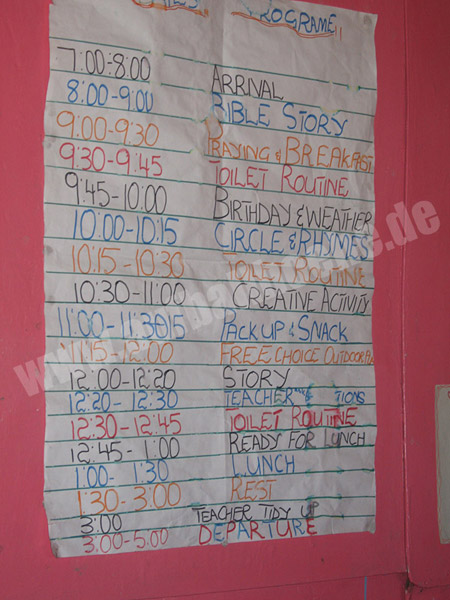 PROGRAME
7:00-8:00 ARRIVAL
8:00-9:00 BIBLE STORY
9:00-9:30 PRAYING & BREAKFAST
9:30-9:45 TOILET ROUTINE
9:45-10:00 BIRTHDAY & WEATHER
10:00-10:15 CIRCLE & RHYMES
10:15-10:30 TOILET ROUTINE
10:30-11:00 CREATIVE ACTIVITY
11:00-11:15 PACK UP & SNACK
11:15-12:00 FREE CHOICE OUTDOOR
12:00-12:20 STORY
12:20-12:30 TEACHER
12:30-12:45 TOILET ROUTINE
12:45-1:00 READY FOR LUNCH
1:00-1:30 LUNCH
1:30-3:00 REST
3:00 TEACHER TIDY UP
3:00-5:00 DEPARTURE